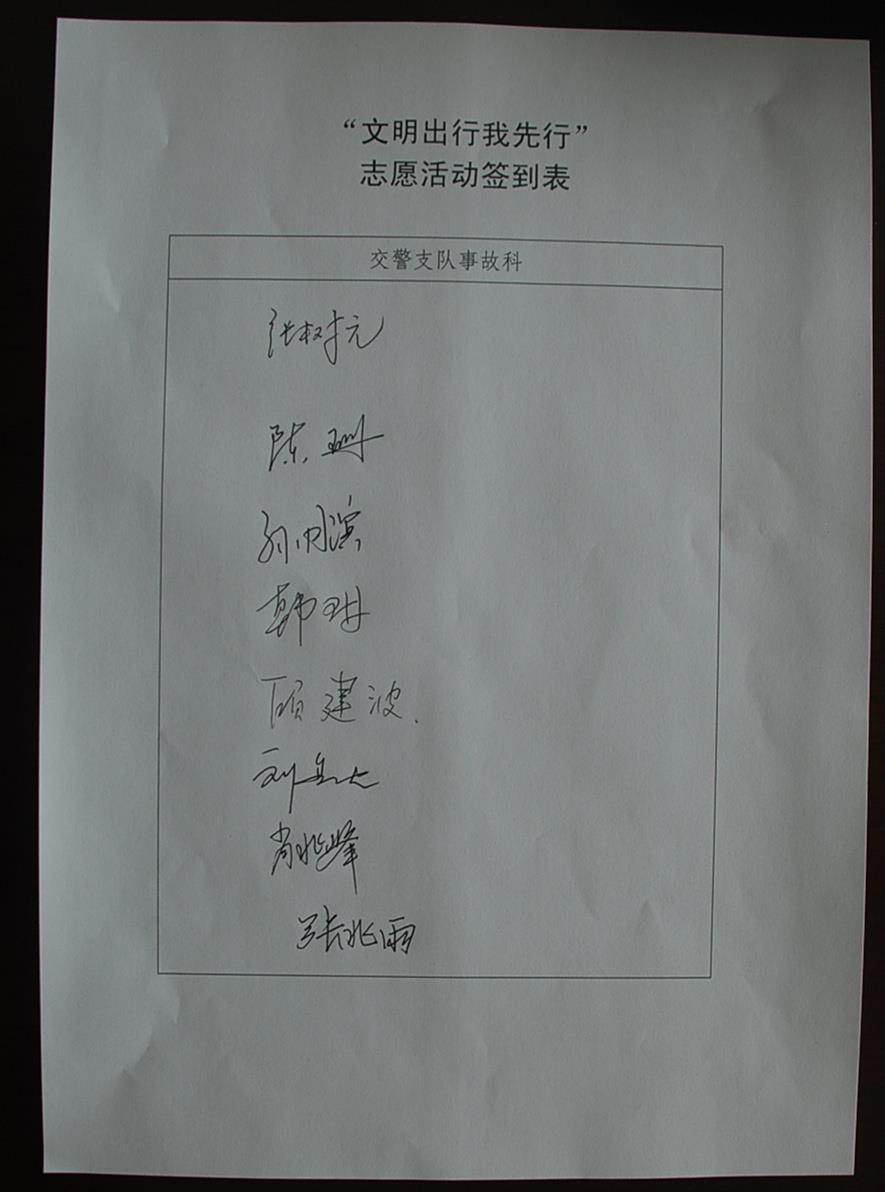 “文明出行我先行”
志愿活动签到表
交警支队事故科
张树元
陈珊
孙
韩琪
顾建波
刘
肖兆峰
张兆雨